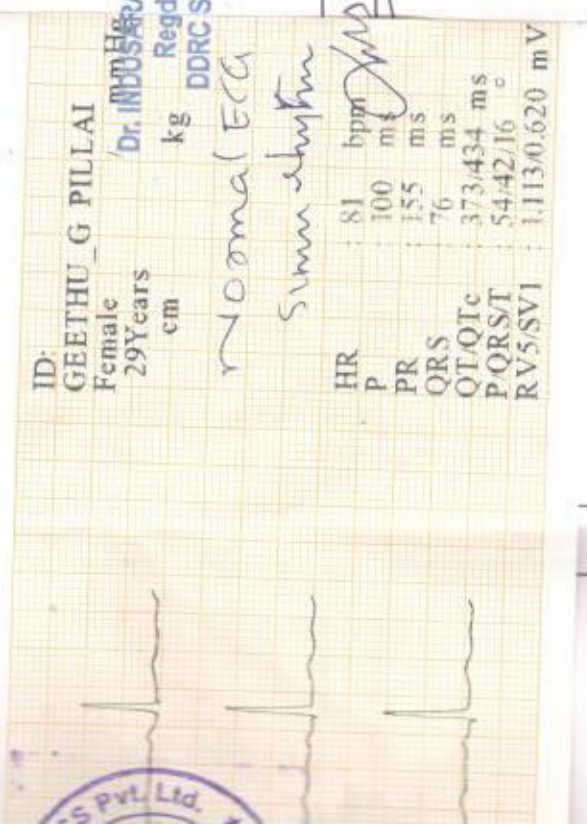 ID:
GEETHU_G PILLAI
Female mmHg
29Years
cm kg
Dr. INDUSARA
Regd
DDRC S
Normal ECG
Sinus rhythm
HR : 81 bpm
P : 100 ms
PR : 155 ms
QRS : 76 ms
QT/QTc : 373/434 ms
P/QRS/T : 54/42/16 °
RV5/SV1 : 1.113/0.620 mV
SS Pvt. Ltd.